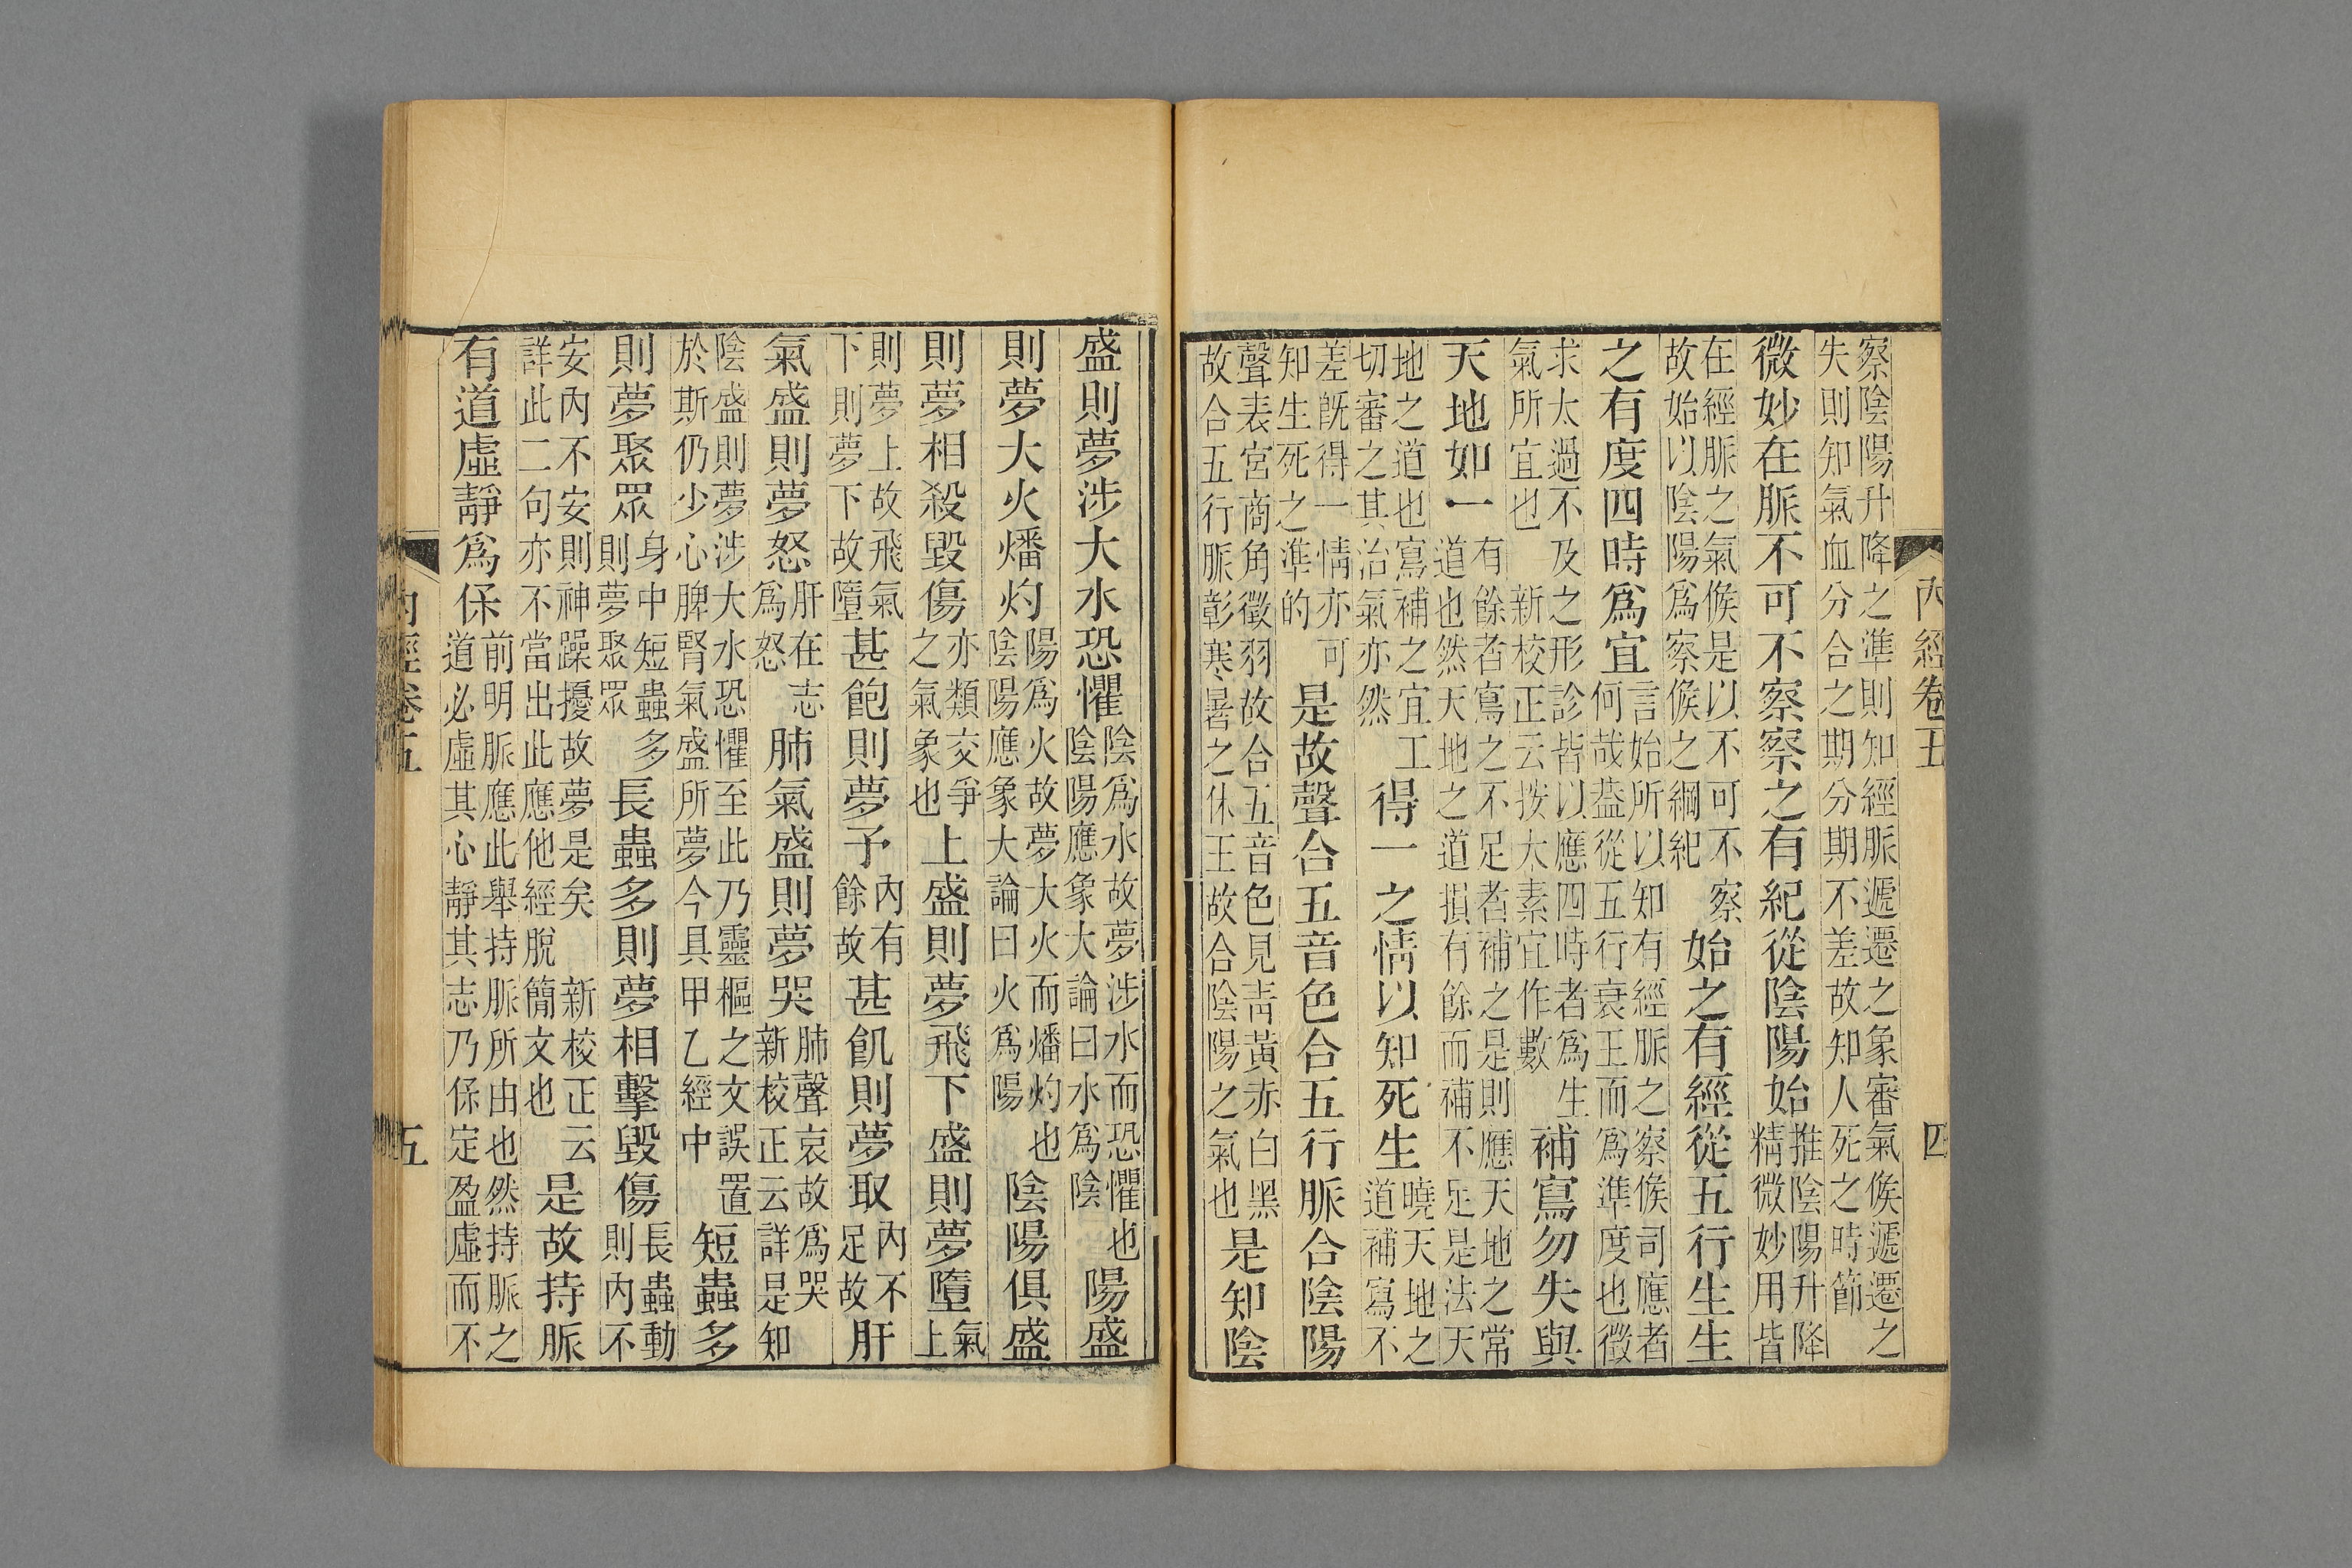 內經卷五　四
察陰陽升降之準則知經脈遞遷之象審氣候遞遷之
失則知氣血分合之期分期不差故知人死之時節
微妙在脈不可不察察之有紀從陰陽始
推陰陽升降
精微妙用皆
在經脈之氣候是以不可不察
故始以陰陽爲察候之綱紀
始之有經從五行生生
之有度四時爲宜
言始所以知有經脈之察候司應者
何哉葢從五行衰王而爲準度也徵
求太過不及之形診皆以應四時者爲生
氣所宜也　新校正云按太素宜作數
補寫勿失與
天地如一
有餘者寫之不足者補之是則應天地之常
道也然天地之道損有餘而補不足是法天
地之道也寫補之宜工
切審之其治氣亦然
得一之情以知死生
曉天地之
道補寫不
差既得一情亦可
知生死之準的
是故聲合五音色合五行脈合陰陽
聲表宮商角徵羽故合五音色見青黃赤白黑
故合五行脈彰寒暑之休王故合陰陽之氣也
是知陰
盛則夢涉大水恐懼
陰爲水故夢涉水而恐懼也
陰陽應象大論曰水爲陰
陽盛
則夢大火燔灼
陽爲火故夢大火而燔灼也
陰陽應象大論曰火爲陽
陰陽俱盛
則夢相殺毀傷
亦類交爭
之氣象也
上盛則夢飛下盛則夢墮
氣
上
則夢上故飛氣
下則夢下故墮
甚飽則夢予
內有
餘故
甚飢則夢取
內不
足故
肝
氣盛則夢怒
肝在志
爲怒
肺氣盛則夢哭
肺聲哀故爲哭
新校正云詳是知
陰盛則夢涉大水恐懼至此乃靈樞之文誤置
於斯仍少心脾腎氣盛所夢今具甲乙經中
短蟲多
則夢聚眾
身中短蟲多
則夢聚眾
長蟲多則夢相擊毀傷
長蟲動
則內不
安內不安則神躁擾故夢是矣　新校正云
詳此二句亦不當出此應他經脫簡文也
是故持脈
有道虛靜爲保
前明脈應此舉持脈所由也然持脈之
道必虛其心靜其志乃保定盈虛而不
內經卷五　五